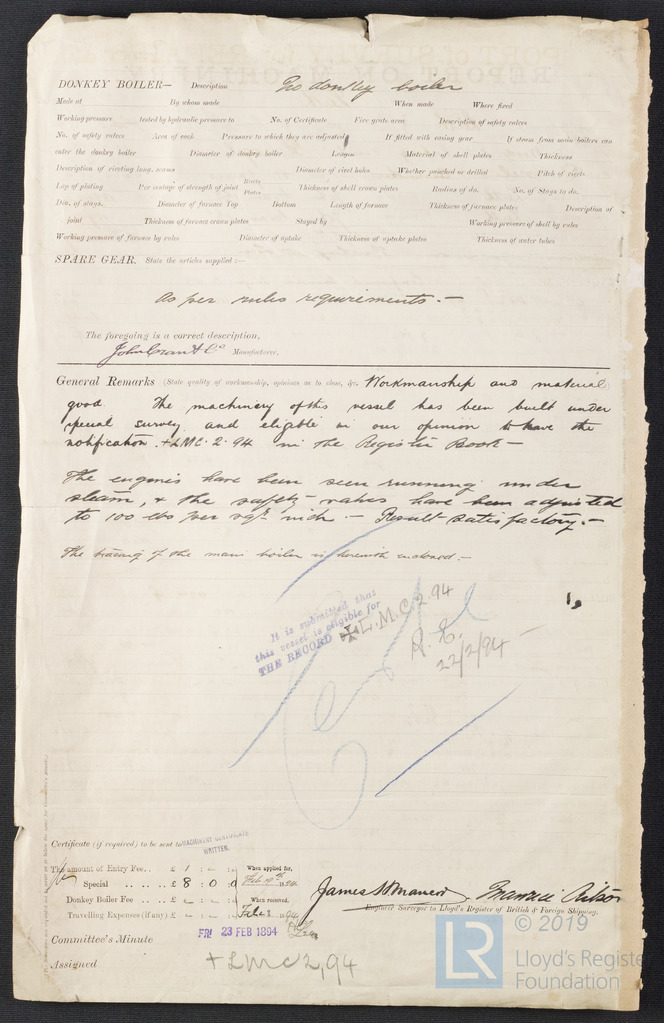 DONKEY BOILER— Description No donkey boiler
Made at By whom made When made Where fixed
Working pressure tested by hydraulic pressure to No. of Certificate Fire grate area Description of safety valves
No. of safety valves Area of each Pressure to which they are adjusted If fitted with easing gear If steam from main boilers can
enter the donkey boiler Diameter of donkey boiler Length Material of shell plates Thickness
Description of riveting long. seams Diameter of rivet holes Whether punched or drilled Pitch of rivets
Lap of plating Per centage of strength of joint Rivets Plates Thickness of shell crown plates Radius of do. No. of Stays to do.
Dia. of stays. Diameter of furnace Top Bottom Length of furnace Thickness of furnace plates Description of
joint Thickness of furnace crown plates Stayed by Working pressure of shell by rules
Working pressure of furnace by rules Diameter of uptake Thickness of uptake plates Thickness of water tubes
SPARE GEAR. State the articles supplied:—
As per rules requirements.—
The foregoing is a correct description,
John Grant & Co Manufacturer.
General Remarks (State quality of workmanship, opinions as to class, &c. Workmanship and material
good. The machinery of this vessel has been built under
special survey and eligible in our opinion to have the
notification. +LMC. 2. 94 in the Register Book—
The engines have been seen running under
steam, & the safety-valves have been adjusted
to 100 lbs per sqr inch.— Result satisfactory.—
The tracing of the main boiler is herewith enclosed.—
It is submitted that
this vessel is eligible for
THE RECORD +L.M.C. 2.94
22/2/94
Certificate (if required) to be sent to
MACHINERY CERTIFICATE
WRITTEN.
The amount of Entry Fee.. £ 1 : - : - When applied for,
Special .... £ 8 : 0 : 0
Donkey Boiler Fee .... £ - : - : - When received.
Travelling Expenses (if any) £ - : - : -
Engineer Surveyor to Lloyd's Register of British & Foreign Shipping.
Committee's Minute FRI 23 FEB 1894
Assigned + LMC 2,94
© 2019
LR
Lloyd's Register
Foundation